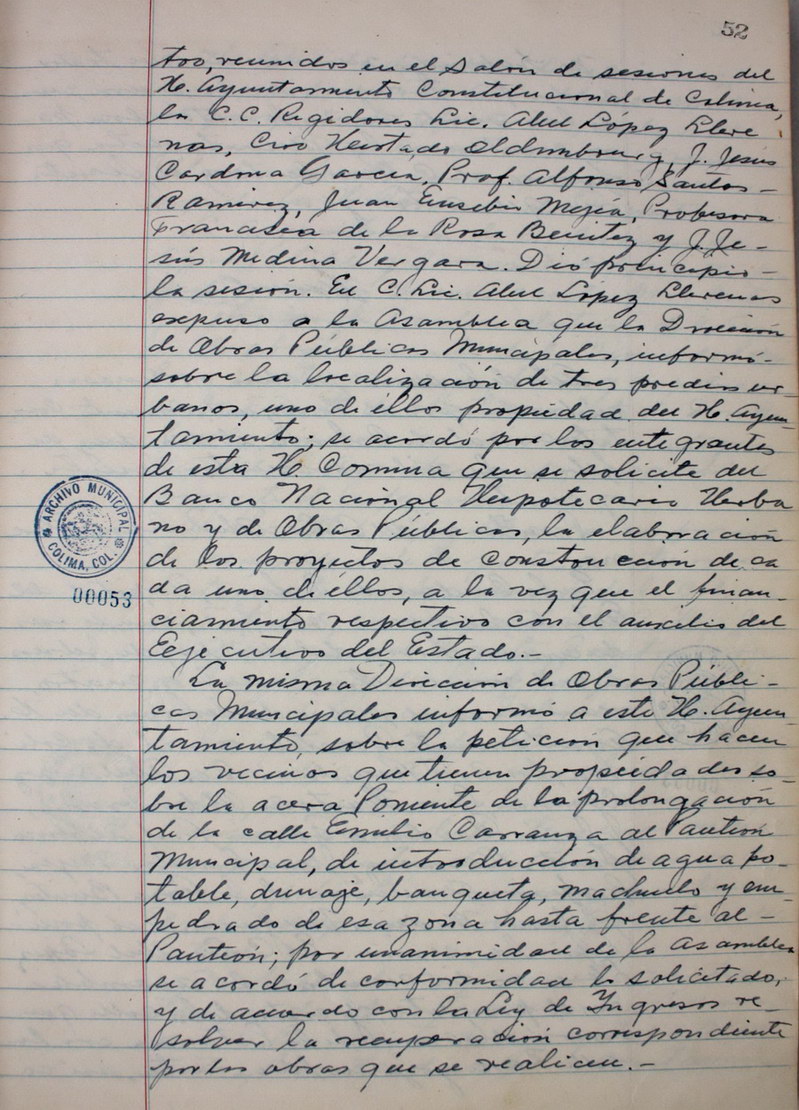 52
tro, reunidos en el Salón de sesiones del
H. Ayuntamiento Constitucional de Colima,
los C.C. Regidores Lic. Abel López Llere
nas, Ciro Hurtado Oldembourg, J. Jesús
Cardona García, Prof. Alfonso Santos-
Ramírez, Juan Eusebio Mejía, Profesora
Francisca de la Rosa Benítez y J. Je-
sús Medina Vergara. Dió principio-
la sesión. El C. Lic. Abel López Llerenas
expuso a la Asamblea que la Dirección
de Obras Públicas Municipales, informó-
sobre la localización de tres predios ur-
banos, uno de éllos propiedad del H. Ayun-
tamiento; se acordó por los integrantes
de esta H. Comuna que se solicite del
Banco Nacional Heipotecario Herba
no y de Obras Públicas, la elaboración
de los proyectos de construcción de ca
da uno de éllos, a la vez que el finan-
ciamiento respectivo con el auxilio del
Eejecutivo del Estado.-
La misma Dirección de Obras Públi-
cas Municipales informó a este H. Ayun-
tamiento, sobre la petición que hacen
los vecinos que tienen propiedades so-
bre la acera Poniente de la prolongación
de la calle Emilio Carranza al Panteón
Municipal, de introducción de agua po-
table, drenaje, banqueta, machuelo y em-
pedrado de esa zona hasta frente al-
Panteón; por unanimidad de la Asamblea
se acordó de conformidad lo solicitado,
y de acuerdo con la Ley de Ingresos re-
solver la recuperación correspondiente
por las obras que se realicen.-
ARCHIVO MUNICIPAL
COLIMA, COL.
00053